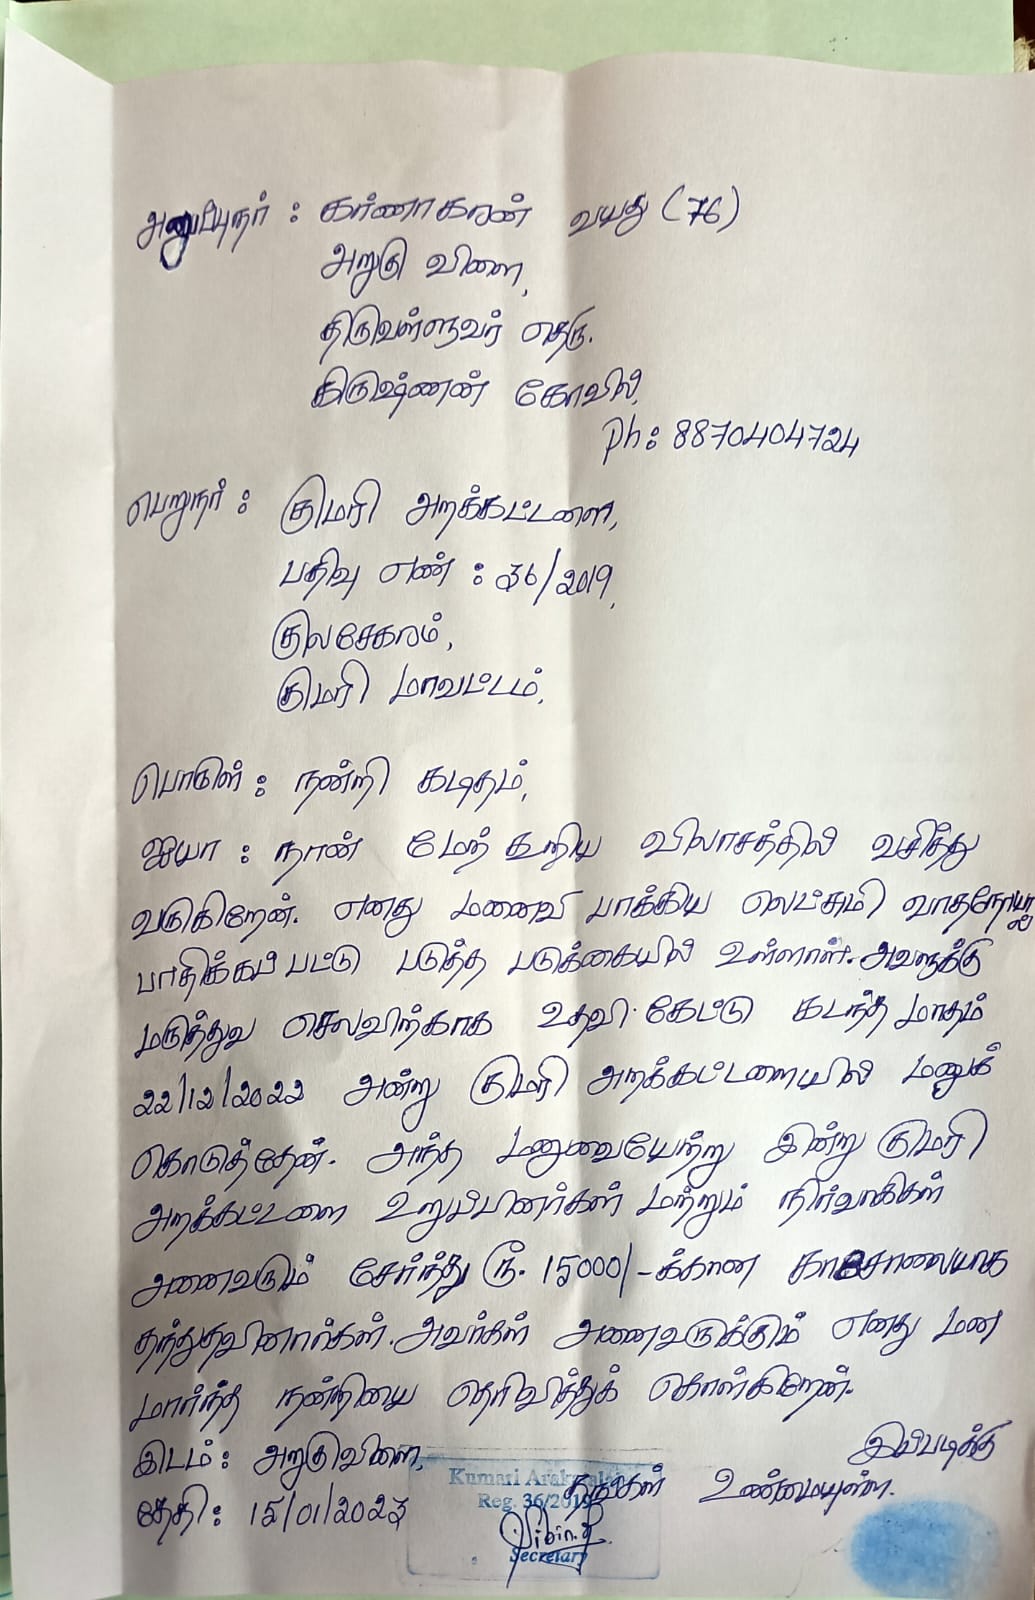 அனுப்புநர் : கர்ணாகரன் வயது (76)
அறுகு விளை,
திருவள்ளுவர் தெரு.
கிருஷ்ணன் கோவில்,
Ph: 8870404724
பெறுநர் : குமரி அறக்கட்டளை,
பதிவு எண் : 36/2019,
குலசேகரம்,
குமரி மாவட்டம்,
பொருள் : நன்றி கடிதம்,
ஐயா : நான் மேற் கூறிய விலாசத்தில் வசித்து
வருகிறேன். எனது மனைவி பாக்கிய லெட்சுமி வாதநோயால்
பாதிக்கப் பட்டு படுத்த படுக்கையில் உள்ளாள். அவளுக்கு
மருத்துவ செலவிற்காக உதவி கேட்டு கடந்த மாதம்
22/12/2022 அன்று குமரி அறக்கட்டளையில் மனுக்
கொடுத்தேன். அந்த மனுவையேற்று இன்று குமரி
அறக்கட்டளை உறுப்பினர்கள் மற்றும் நிர்வாகிகள்
அனைவரும் சேர்ந்து ரூ. 15000/-க்கான காசோலையாக
தந்துதவினார்கள். அவர்கள் அனைவருக்கும் எனது மன
மார்ந்த நன்றியை தெரிவித்துக் கொள்கிறேன்.
இடம் : அறுகுவிளை, இப்படிக்கு
தங்கள் உண்மையுள்ள.
தேதி : 15/01/2023
Kumari
Reg. 36/2019
Secretary